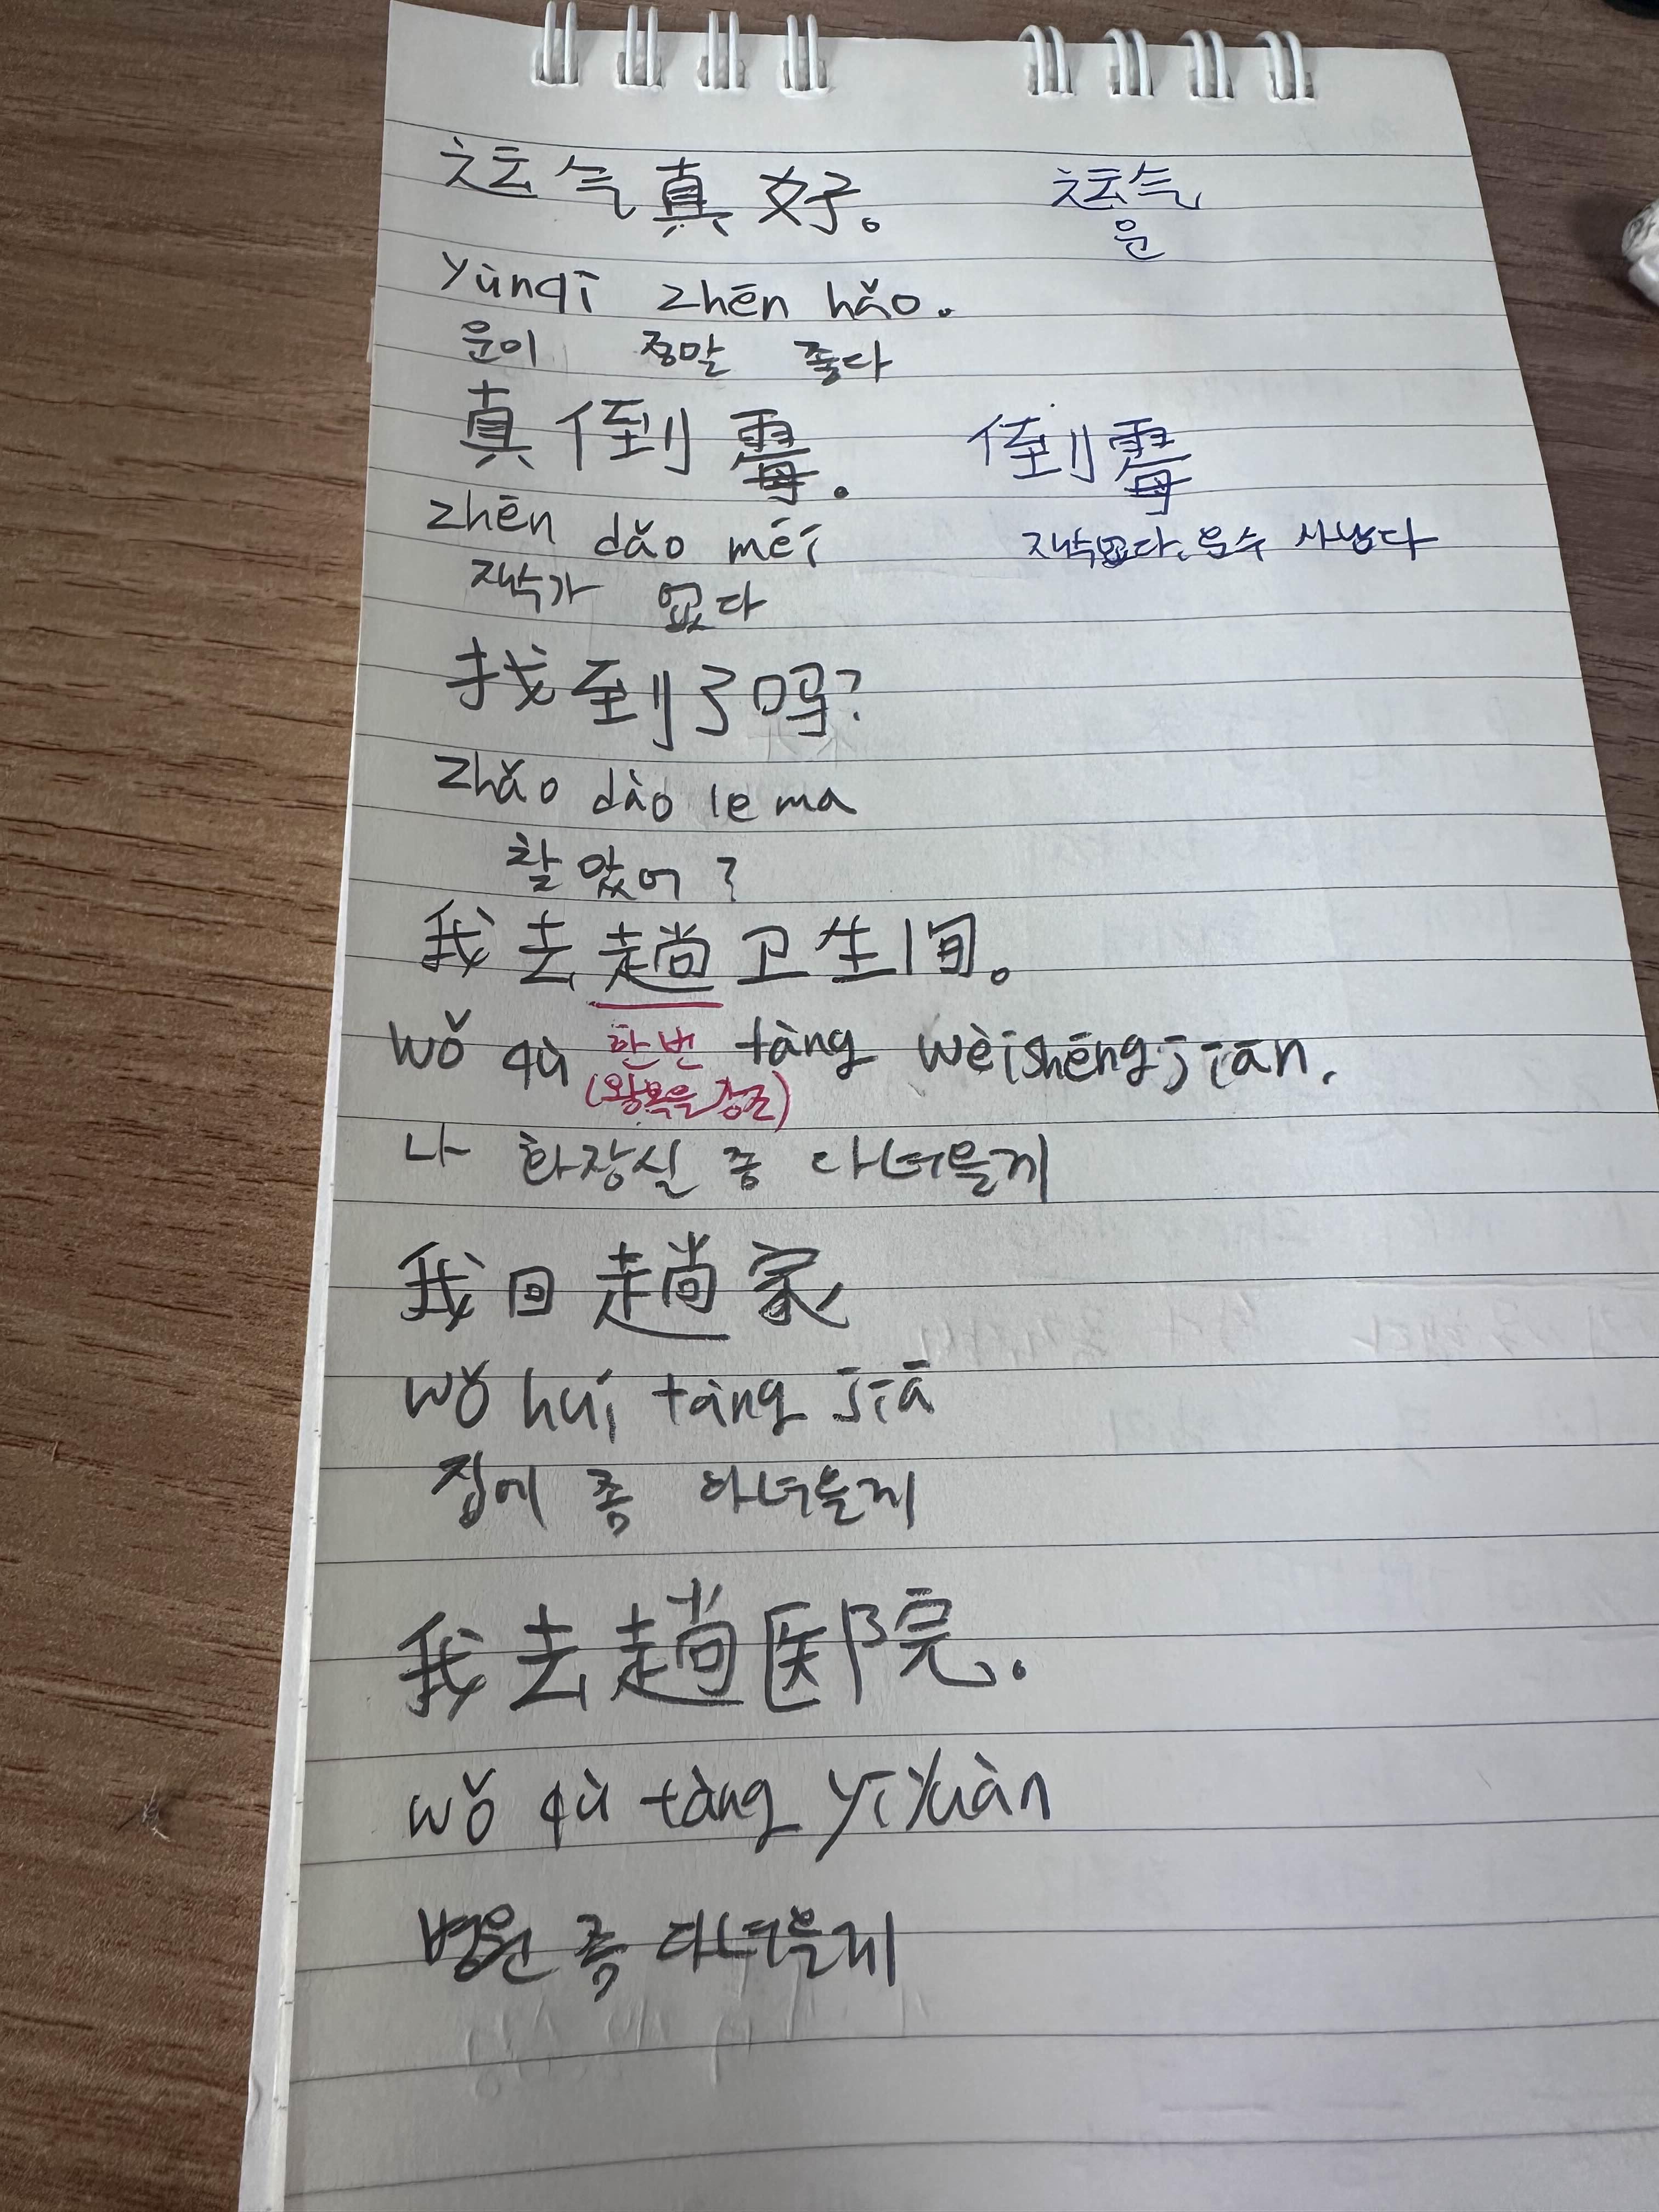 运气真好。 运气
운
yùnqì zhēn hǎo.
운이 정말 좋다
真倒霉。 倒霉
zhēn dǎo méi 재수없다, 운수 사납다
재수가 없다
找到了吗?
zhǎo dào le ma
찾았어?
我去趟卫生间。
wǒ qù 한번 tàng wèishēngjiān.
(왕복을 강조)
나 화장실 좀 다녀올게
我回趟家
wǒ huí tàng jiā
집에 좀 다녀올게
我去趟医院。
wǒ qù tàng yīyuàn
병원 좀 다녀올게